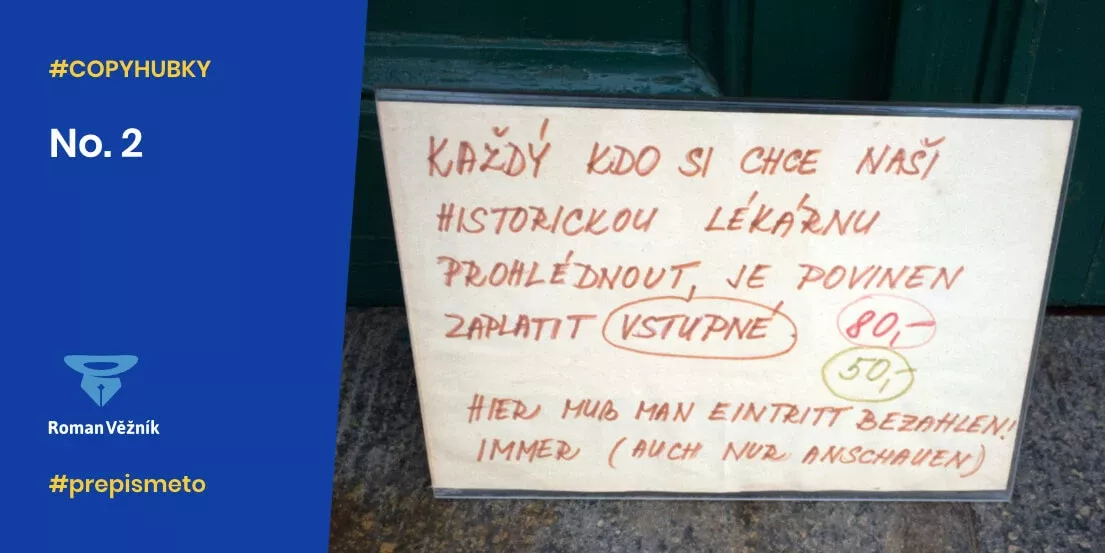 #COPYHUBKY
No. 2
Roman Věžník
#prepismeto
KAŽDÝ KDO SI CHCE NAŠÍ
HISTORICKOU LÉKÁRNU
PROHLÉDNOUT, JE POVINEN
ZAPLATIT VSTUPNÉ. 80,-
50,-
HIER MUß MAN EINTRITT BEZAHLEN!
IMMER (AUCH NUR ANSCHAUEN)